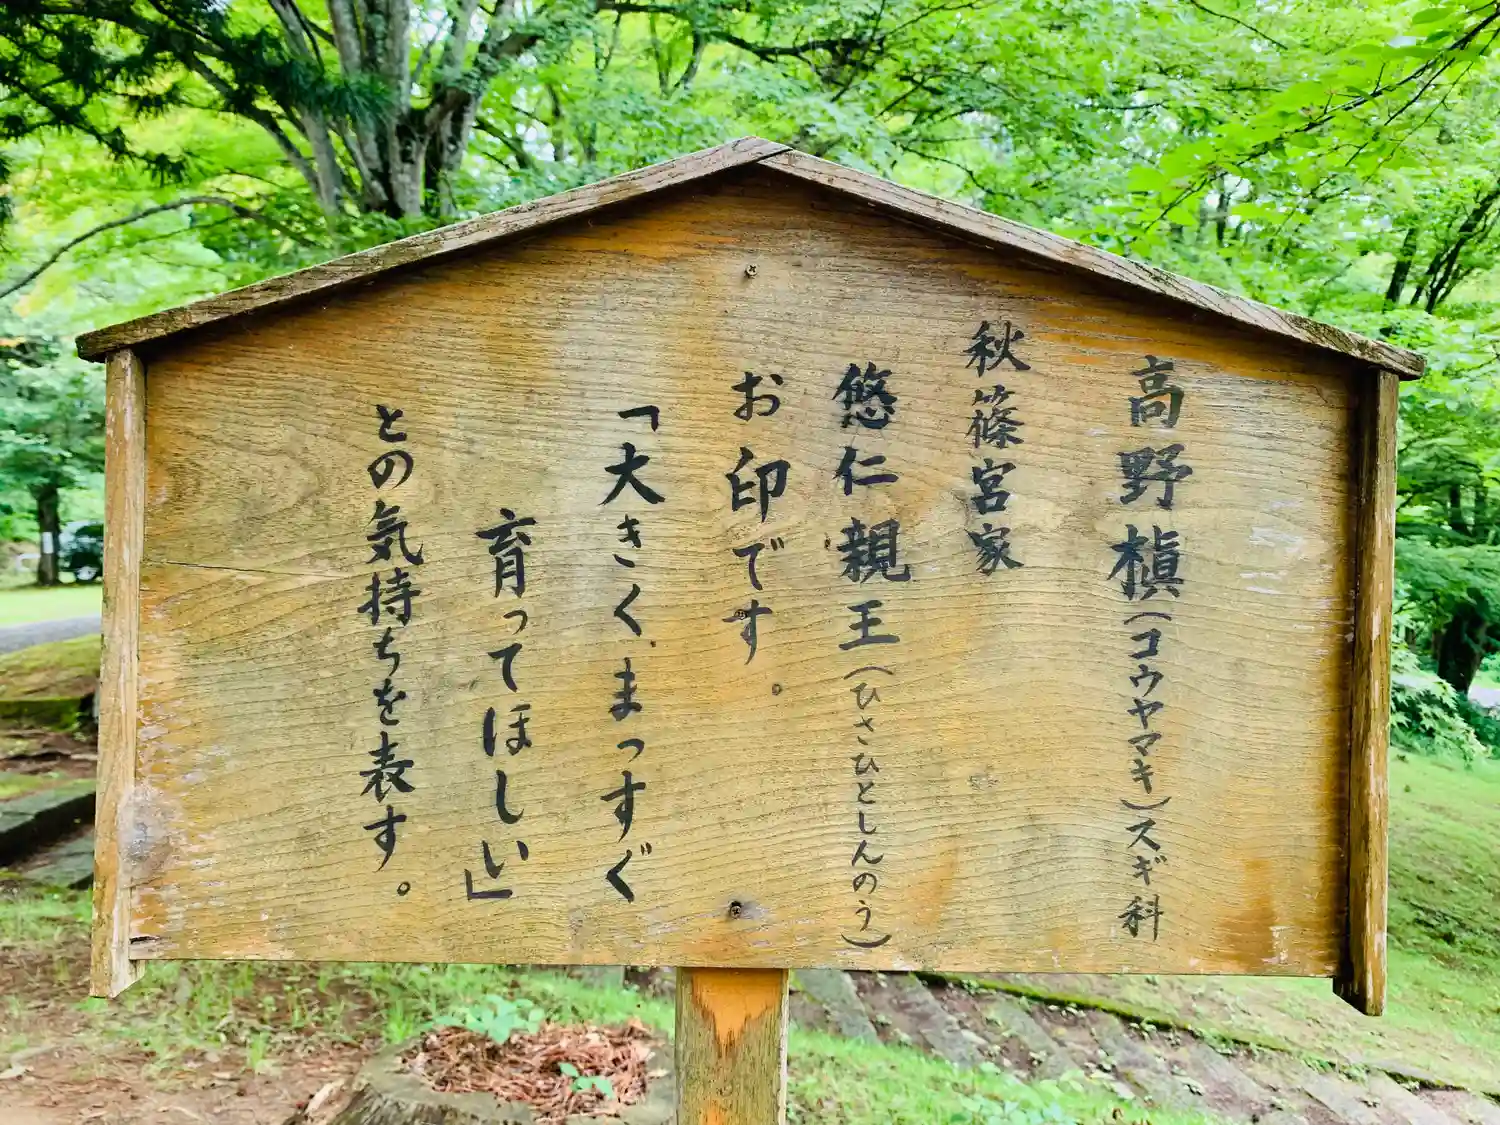 高野槇(コウヤマキ)スギ科
秋篠宮家
悠仁親王(ひさひとしんのう)
お印です。
「大きく、まっすぐ
育ってほしい」
との気持ちを表す。